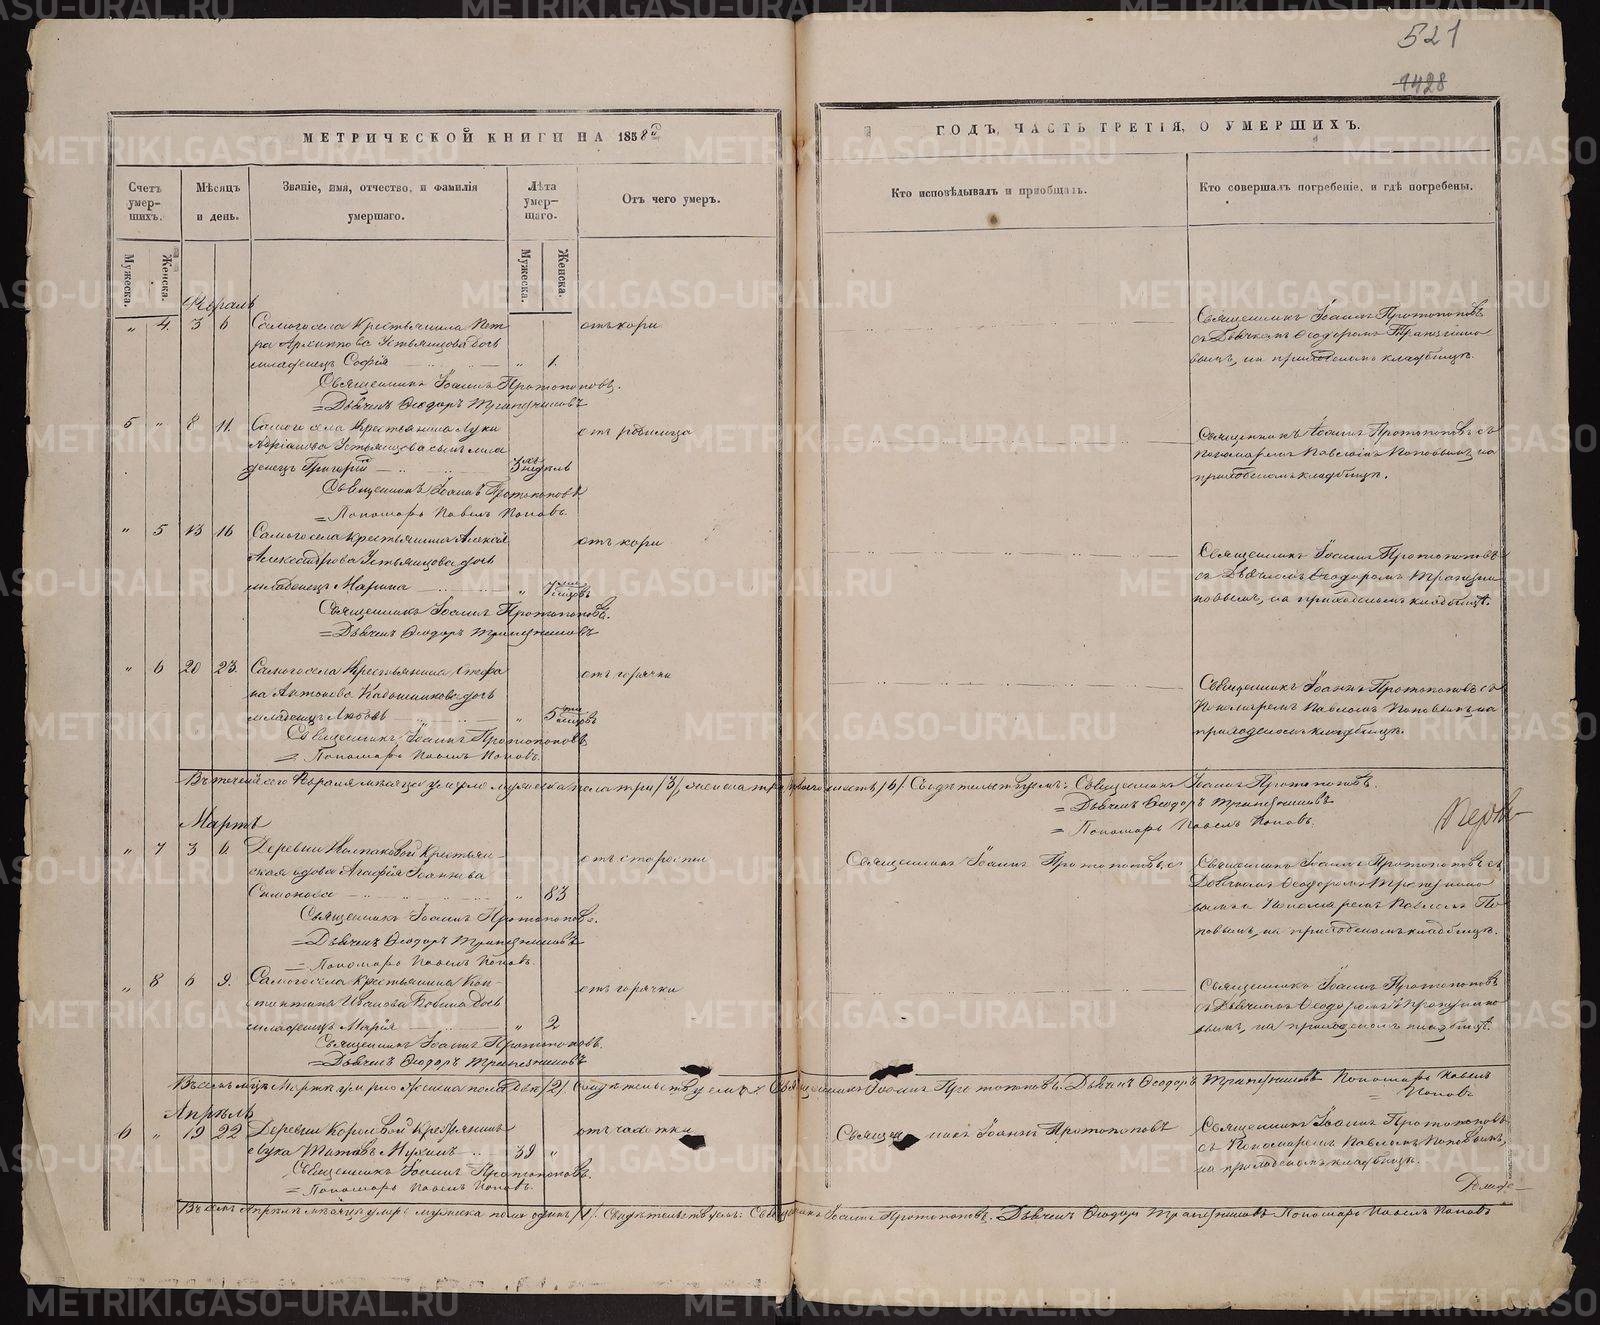 521
1428
МЕТРИЧЕСКОЙ КНИГИ НА 1858й
ГОДЪ, ЧАСТЬ ТРЕТІЯ, О УМЕРШИХЪ.
Счетъ умер-шихъ.
Мѣсяцъ и день.
Званіе, имя, отчество, и фамилія умершаго.
Лѣта умер-шаго.
Отъ чего умеръ.
Кто исповѣдывалъ и пріобщалъ.
Кто совершалъ погребеніе, и гдѣ погребены.
Мужеска.
Женска.
Мужеска.
Женска.
Февраль
" 4. 3 6 Самого села Крестьянина Пет- отъ кори Священникъ Іоаннъ Протопоповъ
ра Архипова Устьянцова дочь съ Дьячкомъ Ѳеодоромъ Трапезнико
младенецъ Софія " 1. вымъ, на приходскомъ кладбищѣ.
Священникъ Іоаннъ Протопоповъ.
=Дьячекъ Ѳеодоръ Трапезниковъ
5 " 8 11. Самого села Крестьянина Луки отъ родимца Священникъ Іоаннъ Протопоповъ съ
Устьянцова сынъ мла пономаремъ Павломъ Поповымъ, на
денецъ Григорій 3хъ недѣль приходскомъ кладбищѣ.
Священникъ Іоаннъ Протопоповъ
=Пономарь Павелъ Поповъ.
" 5 13 16 Самого села Крестьянина Алексѣя отъ кори Священникъ Іоаннъ Протопоповъ
Александрова Устьянцова дочь съ Дьячкомъ Ѳеодоромъ Трапезни
младенецъ Марина " ковымъ, на приходскомъ кладбищѣ.
Священникъ Іоаннъ Протопоповъ.
=Дьячекъ Ѳеодоръ Трапезниковъ
" 6 20 23. Самого села Крестьянина Стефа отъ горячки Священникъ Іоаннъ Протопоповъ съ
на Антонова дочь Пономаремъ Павломъ Поповымъ, на
младенецъ Любовь " 5 приходскомъ кладбищѣ.
Священникъ Іоаннъ Протопоповъ
= Пономарь Павелъ Поповъ.
Въ теченіе сего Февраля мѣсяца умерло мужеска пола три /3/, женска три, всего шесть /6/. Свидѣтельствуемъ: Священникъ Іоаннъ Протопоповъ.
= Дьячекъ Ѳеодоръ Трапезниковъ
= Пономарь Павелъ Поповъ.
Мартъ
" 7 3 6 Деревни Колпаковой Крестьян- отъ старости Священникъ Іоаннъ Протопоповъ Священникъ Іоаннъ Протопоповъ съ
ская вдова Агафія Іоаннова Дьячкомъ Ѳеодоромъ Трапезнико
Симонова " 83 вымъ и Пономаремъ Павломъ По
Священникъ Іоаннъ Протопоповъ. повымъ, на приходскомъ кладбищѣ.
=Дьячекъ Ѳеодоръ Трапезниковъ
= Пономарь Павелъ Поповъ.
" 8 6 9. Самого села Крестьянина Кон- отъ горячки Священникъ Іоаннъ Протопоповъ
стантина Иванова дочь съ Дьячкомъ Ѳеодоромъ Трапезнико
младенецъ Марія " 2 вымъ, на приходскомъ кладбищѣ.
Священникъ Іоаннъ Протопоповъ.
=Дьячекъ Ѳеодоръ Трапезниковъ
Въ семъ м-цѣ Мартѣ умерло женска пола двѣ /2/. Свидѣтельствуемъ: Священникъ Іоаннъ Протопоповъ. Дьячекъ Ѳеодоръ Трапезниковъ Пономарь Павелъ
= Поповъ
Апрѣль
6 " 19 22 Деревни Крестьянинъ отъ чахотки Священникъ Іоаннъ Протопоповъ Священникъ Іоаннъ Протопоповъ
Мухинъ 39 " съ Пономаремъ Павломъ Поповымъ,
Священникъ Іоаннъ Протопоповъ. на приходскомъ кладбищѣ.
= Пономарь Павелъ Поповъ.
Въ семъ Апрѣлѣ мѣсяцѣ умеръ мужеска пола одинъ /1/. Свидѣтельствуемъ: Священникъ Іоаннъ Протопоповъ. Дьячекъ Ѳеодоръ Трапезниковъ Пономарь Павелъ Поповъ
METRIKI.GASO-URAL.RU